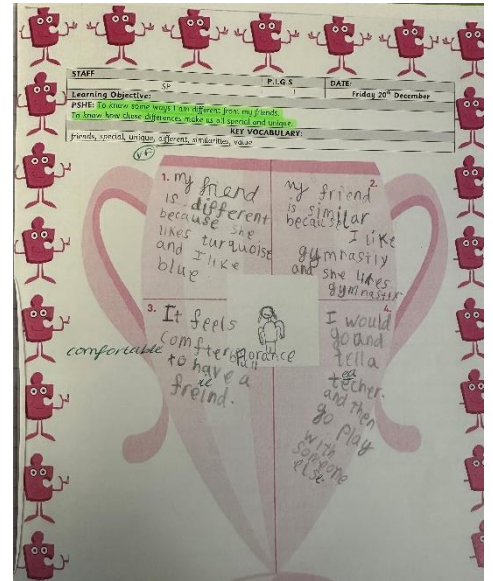 STAFF SP P.I.G.S 1 DATE:
Learning Objective: Friday 20th December
PSHE: To know some ways I am different from my friends.
To know how these differences make us all special and unique.
KEY VOCABULARY:
friends, special, unique, different, similarities, value
VF
1. my friend
is different
because she
likes turquoise
and I like
blue
2.
my friend
is similar
because
I like
gymrastly
and she likes
gymnastix
3. It feels
comfterbull
comfortable
to have a
ie
freind.
florance
4.
I would
go and
tell a
ea
techer.
and then
go play
with
someone
else.